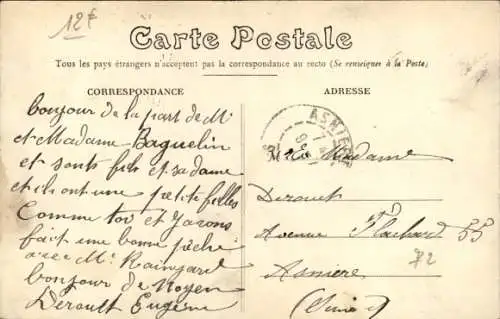 12f
Carte Postale
Tous les pays étrangers n'acceptent pas la correspondance au recto (Se renseigner à la Poste)
CORRESPONDANCE
ADRESSE
bonjour de la part de Mr
et Madame Baguelin
et sont fils et sa dame
et ils ont une petite filles
Comme toi et
fait une bonne pêche
avec Mr Raingard
bonjour de Noyen
Dérouet Eugène
ASNIÈRES
Mr et Madame
Derouet
Avenue Flachard 55
Asniere
(Seine)
72